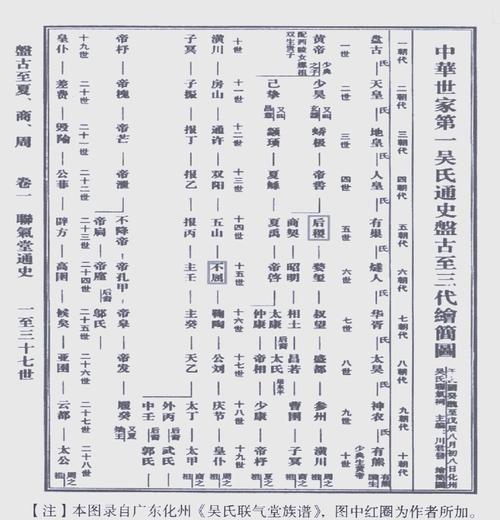 中華世家第一吴氏通史盤古至三代繪簡圖
一朝代 二朝代 三朝代 四朝代 五朝代 六朝代 七朝代 八朝代 九朝代 十朝代
盘古氏 天皇氏 地皇氏 人皇氏 有巢氏 燧人氏 华胥氏 太昊氏 神农氏 有熊氏
少典生黄帝
一世 二世 三世 四世 五世 六世 七世 八世 九世 十世
黄帝 少典之子 少昊 蟜极 帝喾 后稷 婺玺 叔望 盛都 参州 潢川
双生贵子
商契 昭明 相土 昌若 曹圉 子冥
己挚 颛顼 夏鲧 夏禹 帝启 太康 后裔 太氏
仲康 帝相 少康 帝杼
十世 十一世 十二世 十三世 十四世 十五世 十六世 十七世 十八世 十九世
潢川 房山 通许 双阳 五山 不屈 鞠陶 公刘 庆节 皇仆
子冥 子振 报丁 报乙 报丙 主壬 主癸 天乙 太丁 太甲
外丙 后裔 武氏
中壬 后裔 郭氏
帝杼 帝槐 帝芒 帝泄 不降帝 帝孔甲 帝皋 帝发 履癸
帝扃 帝廑 后裔 邬氏
十九世 二十世 二十一世 二十二世 二十三世 二十四世 二十五世 二十六世 二十七世 二十八世
皇仆 差费 毁隃 公菲 辟方 高圉 候矣 亚圉 云都 太公
盤古至夏、商、周 卷一 聯氣堂通史 一至三十七世
【注】本图录自广东化州《吴氏联气堂族谱》，图中红圈为作者所加。